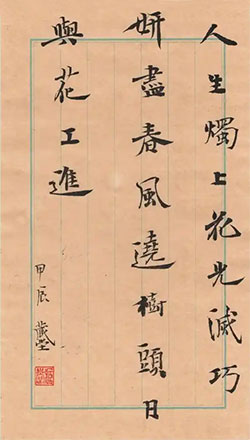 人生燭上花光滅巧
妍盡春風遶樹頭日
與花工進
甲辰